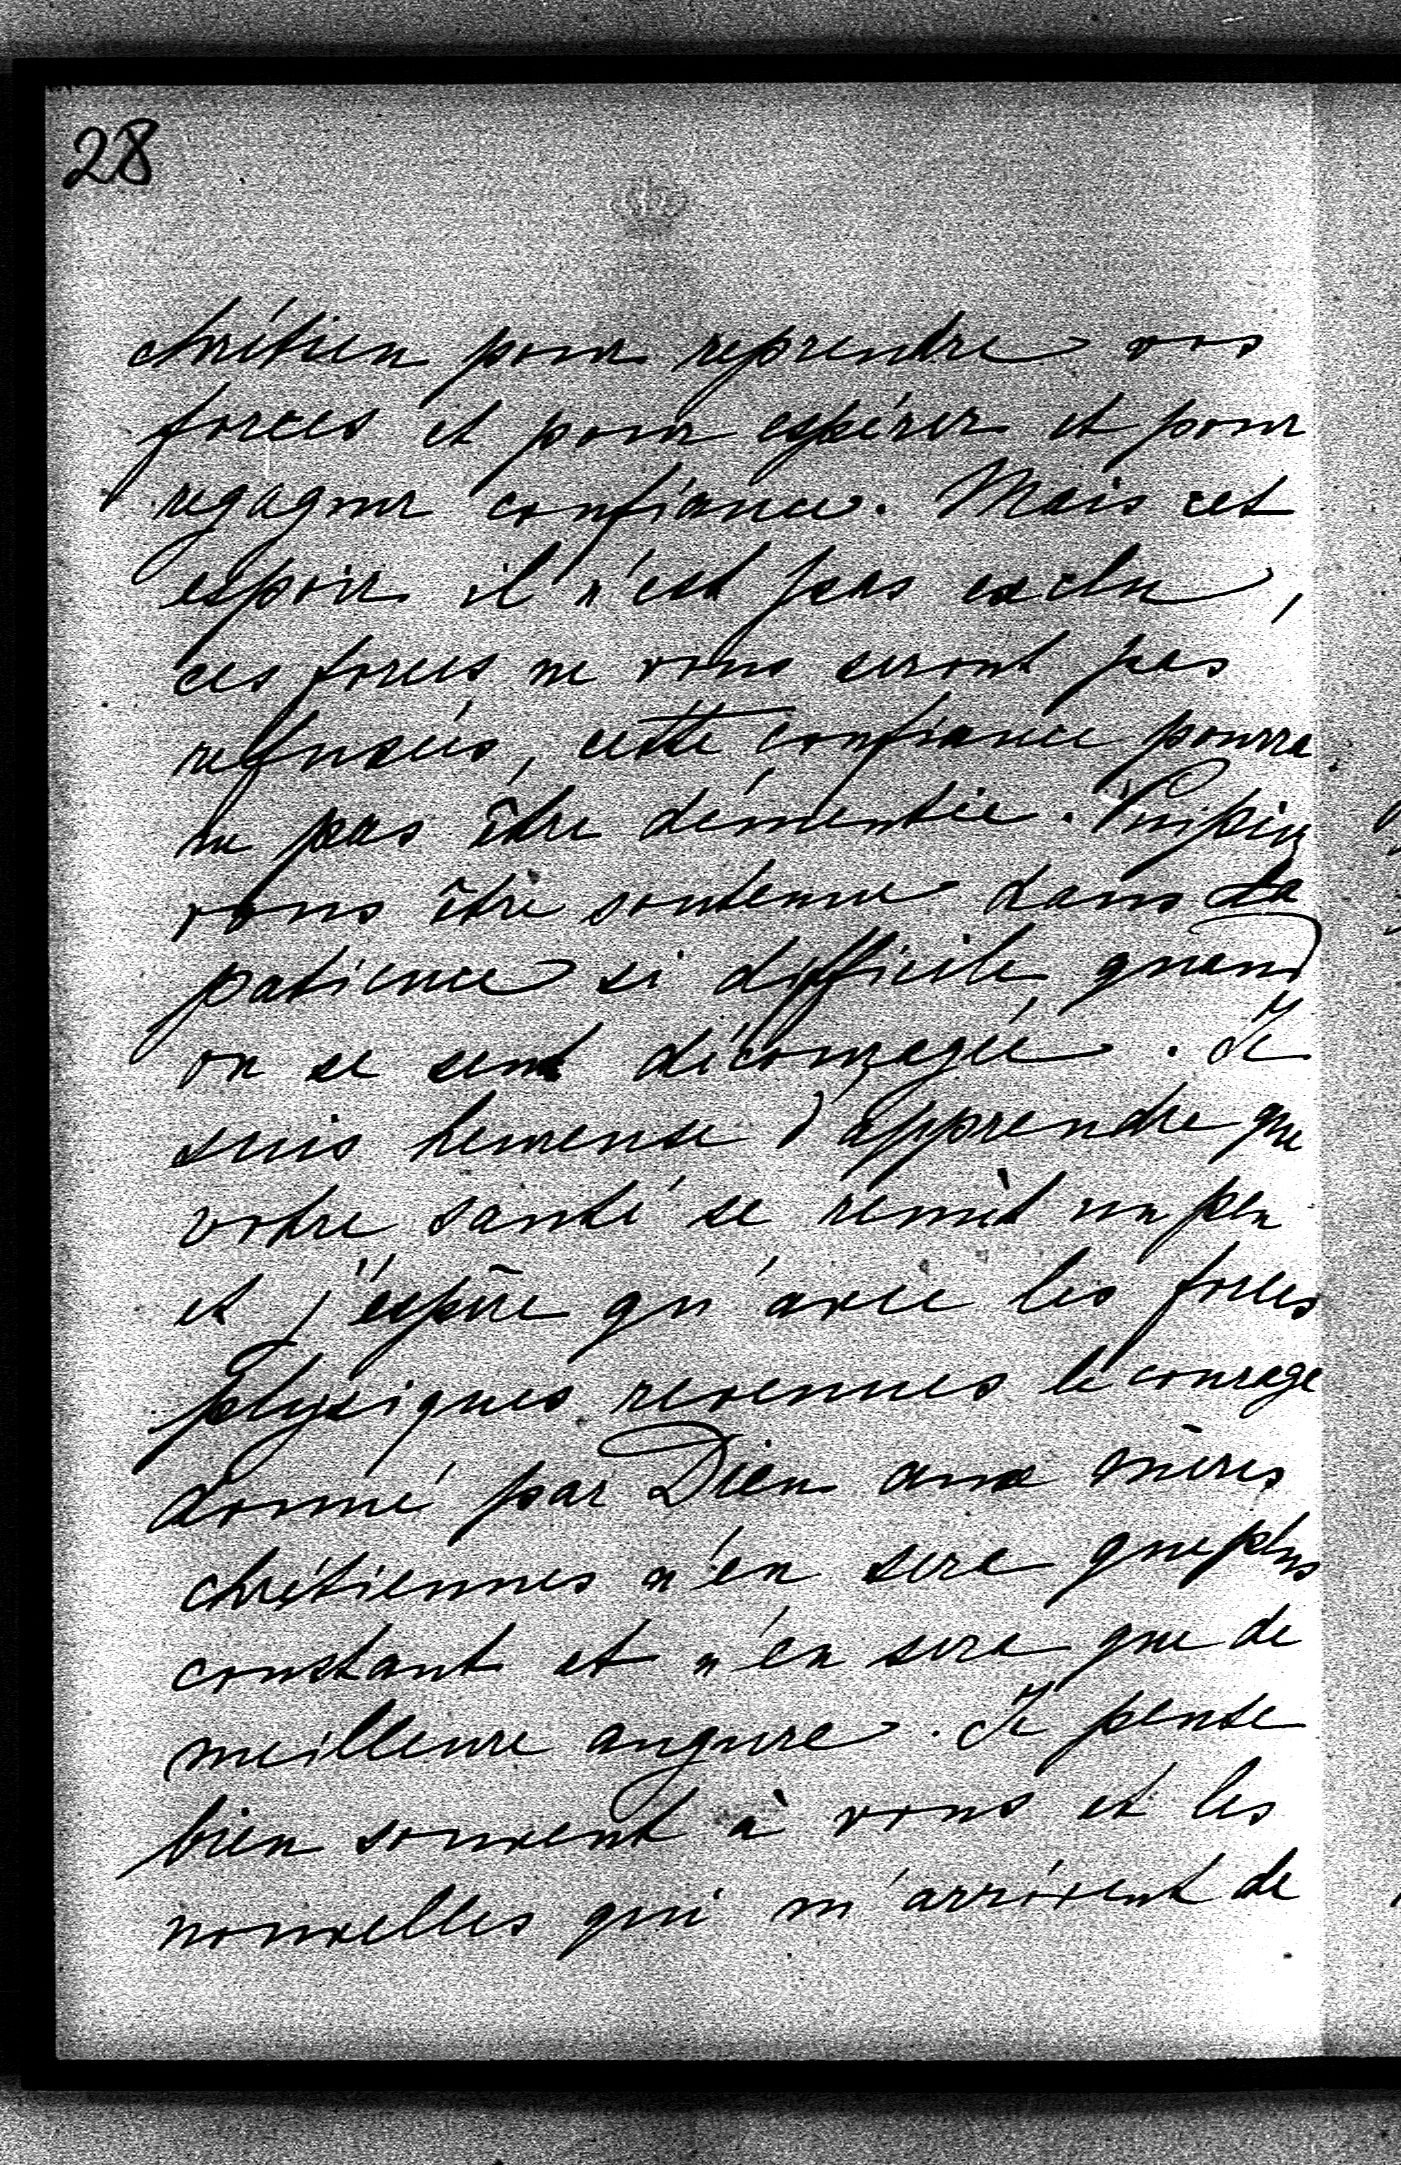 28
chrétien pour reprendre vos
forces et pour espérer et pour
regagner confiance. Mais cet
espoir il n'est pas exclu,
ces forces ne vous seront pas
refusées, cette confiance pourra
ne pas être démentie. Puissiez
vous être soutenue dans la
patience si difficile quand
on se sent découragée. Je
suis heureuse d'apprendre que
votre santé se remit un peu
et j'éspère qu'avec les forces
physiques revenues le courage
donné par Dieu aux mères
chrétiennes n'en sera que plus
constant et n'en sera que de
meilleure augure. Je pense
bien souvent à vous et les
nouvelles qui m'arrivent de